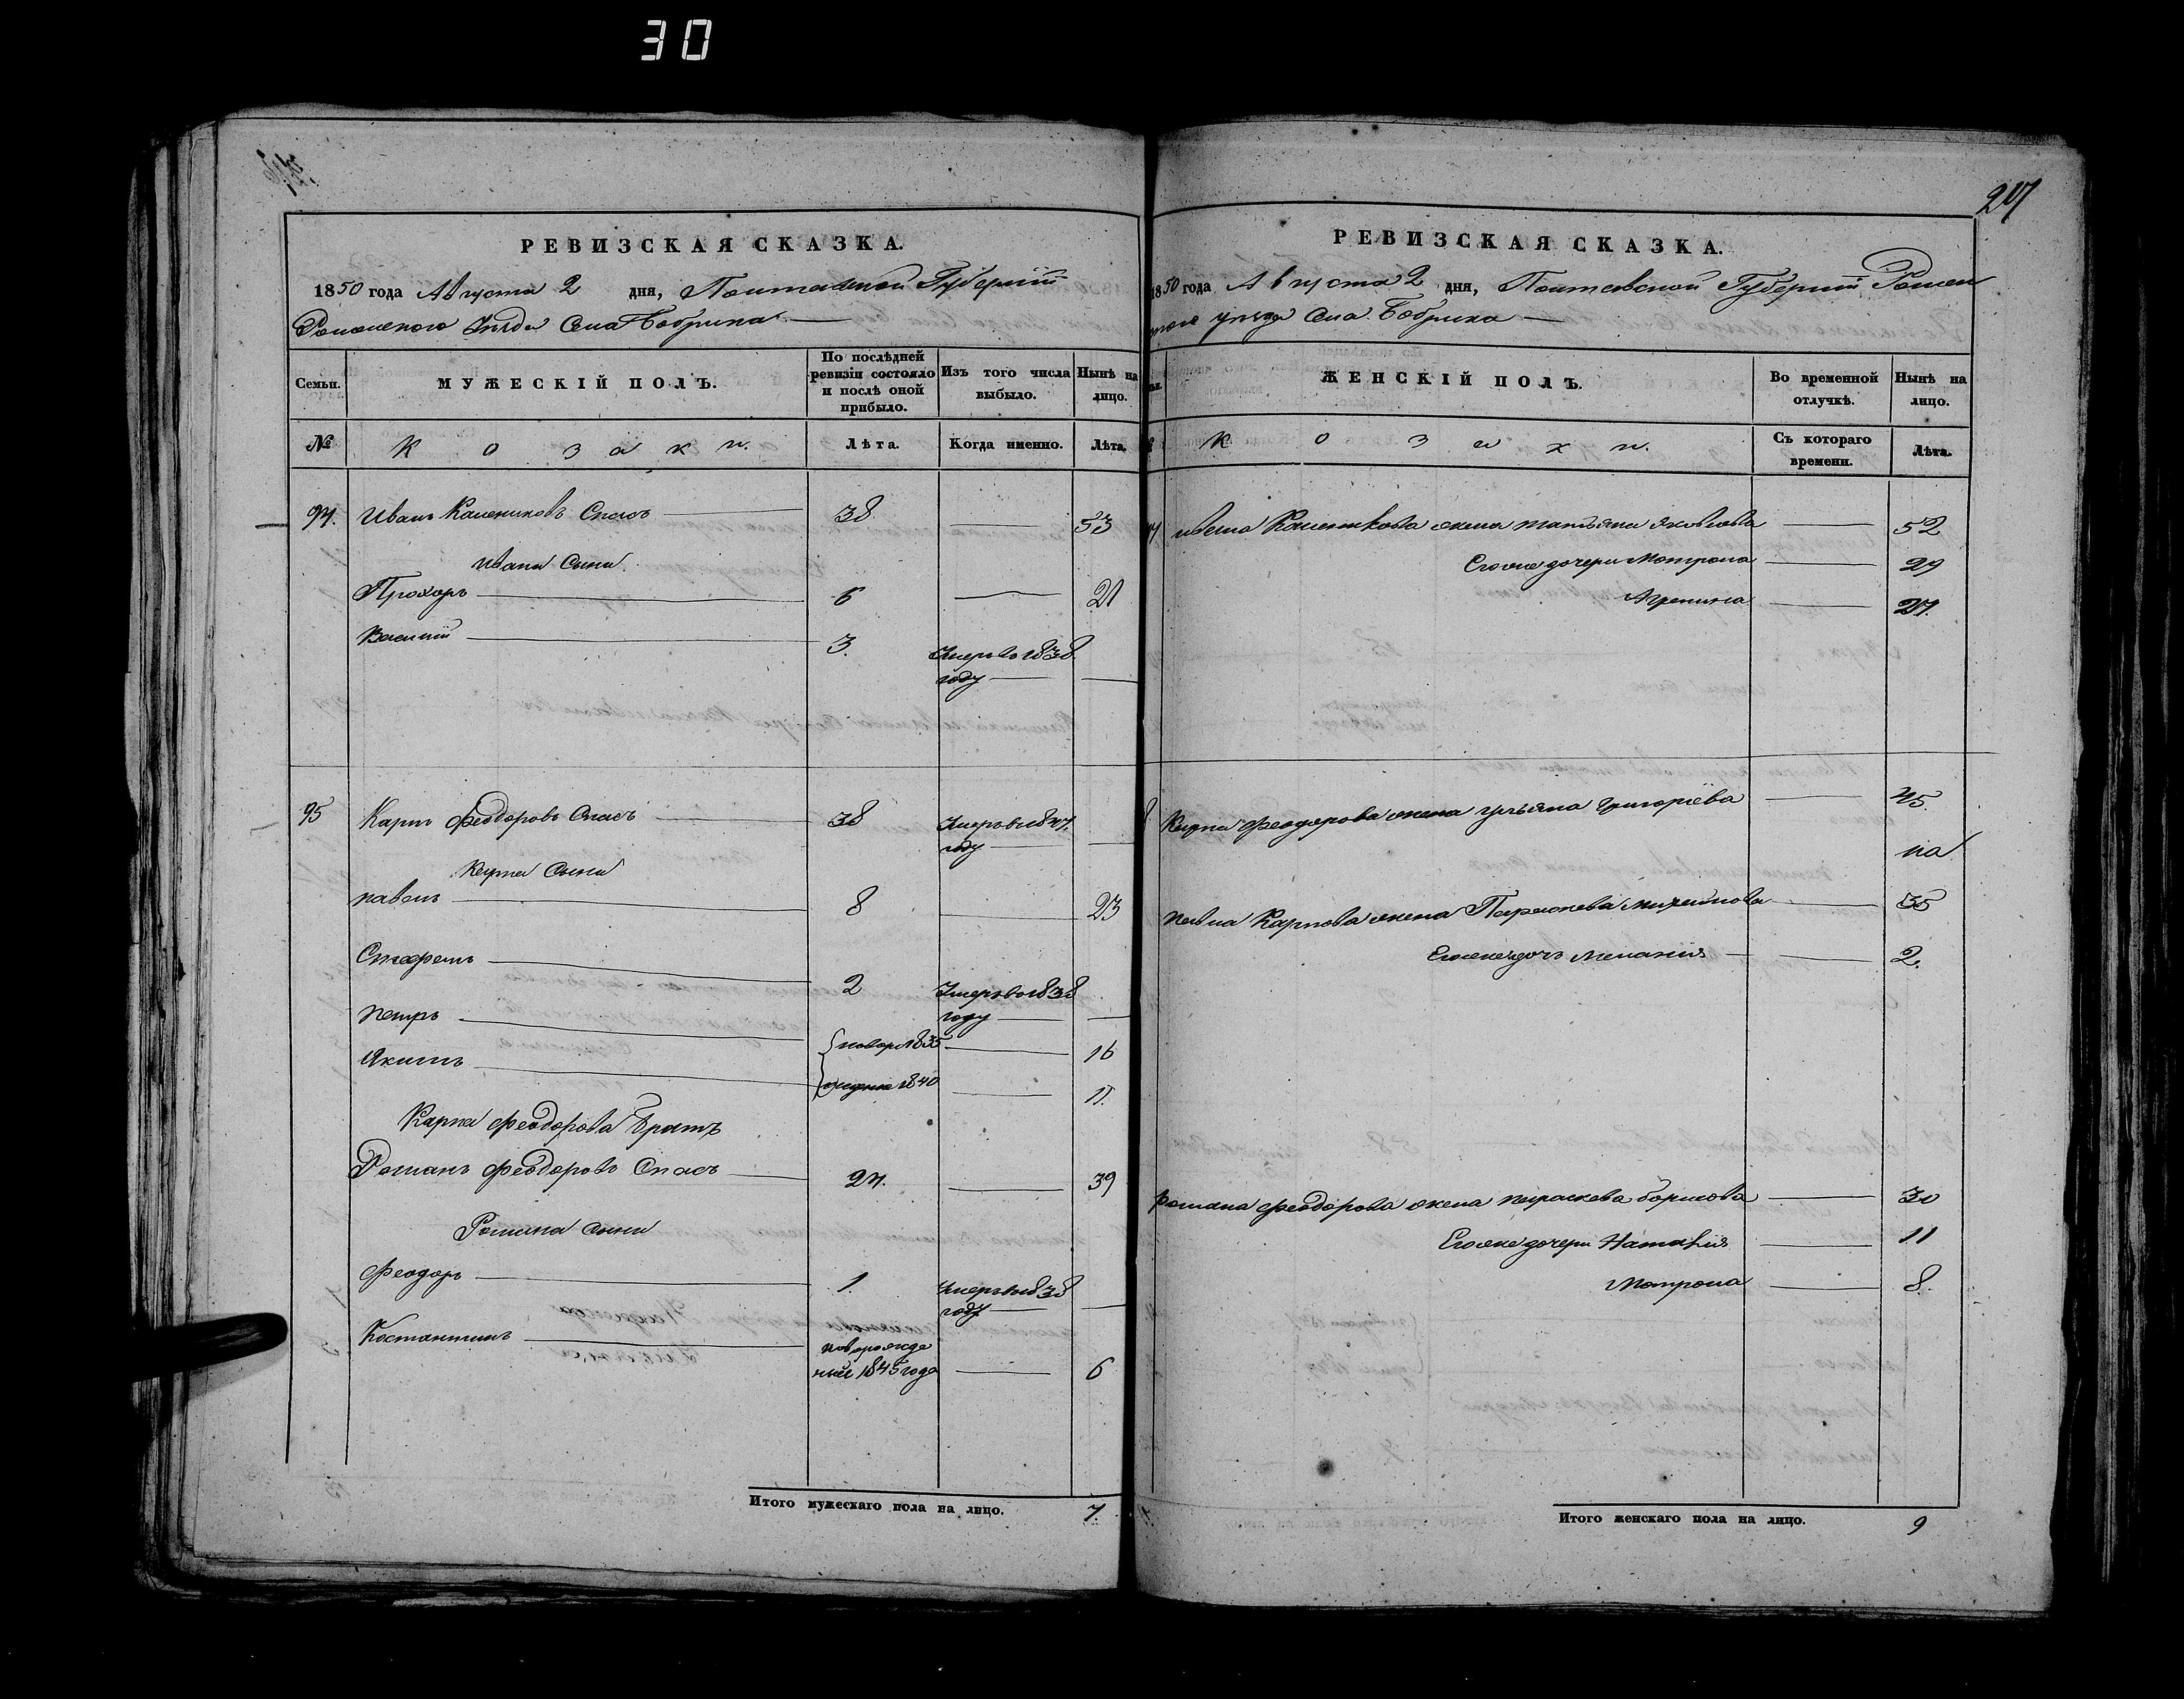 30
РЕВИЗСКАЯ СКАЗКА.
1850 года Августа 2 дня, Полтавской Губернии
Роменского уезда Села Бобрика
Семьи.
МУЖЕСКІЙ ПОЛЪ.
По послѣдней ревизіи состояло и послѣ оной прибыло.
Изъ того числа выбыло.
Нынѣ на лицо.
№
Козаки.
Лѣта.
Когда именно.
Лѣта.
94. Иванъ Калениковъ Спасъ 38 53
Ивана Сыни
Прохоръ 6 21
Василій 3. Умеръ въ 1838
году
95 Карпъ Феодоровъ Спасъ 38 Умеръ въ 1847.
году
Карпа Сыни
Павелъ 8 23
2 Умеръ въ 1838
году
Петръ 1835 16
Якимъ 1840 11.
Карпа Феодорова Братъ
Романъ Феодоровъ Спасъ 24. 39
Романа Сыни
Феодоръ 1. Умеръ въ 1838
году
Костантинъ новорожде
ный 1845 года 6
Итого мужескаго пола на лицо. 7.
217
РЕВИЗСКАЯ СКАЗКА.
1850 года Августа 2 дня, Полтавской Губернии Ромен
ского уезда Села Бобрика
ЖЕНСКІЙ ПОЛЪ.
Во временной отлучкѣ.
Нынѣ на лицо.
Козачки.
Съ котораго времени.
Лѣта.
Ивана Каленикова жена Татьяна Яковлева 52
Егоже дочери Мотрона 29
Агрепина 27.
Карпа Феодорова жена Ульяна Григоріева 45.
Павла Карпова жена Параскева Михайлова 35
Егоже дочь Меланія 2.
Романа Феодорова жена Параскева Борисова 30
Егоже дочери Наталія 11
Мотрона 8.
Итого женскаго пола на лицо. 9